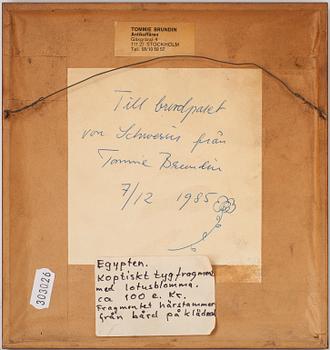 TOMMIE BRUNDIN
Antikaffären
Gåsgränd 4
111 27 STOCKHOLM
Till brudparet
von Schwerins från
Tommie Brundin
7/12 1985
303026
Egypten.
Koptiskt tygfragment
med lotusblomma.
ca 100 e. Kr.
Fragmentet härstammar
från bård på klädnad